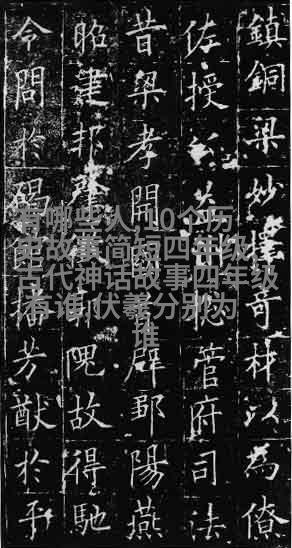 鎮銅梁妙擇奇材以為僚
佐授益州總管府司法
昔梁孝開國辟鄒陽燕
昭建邦肇隗故得馳
令問於碣播芳猷於平
有哪些人,10个历
史故事简短四年级,
古代神话故事四年级
有谁,伏羲分别为
谁